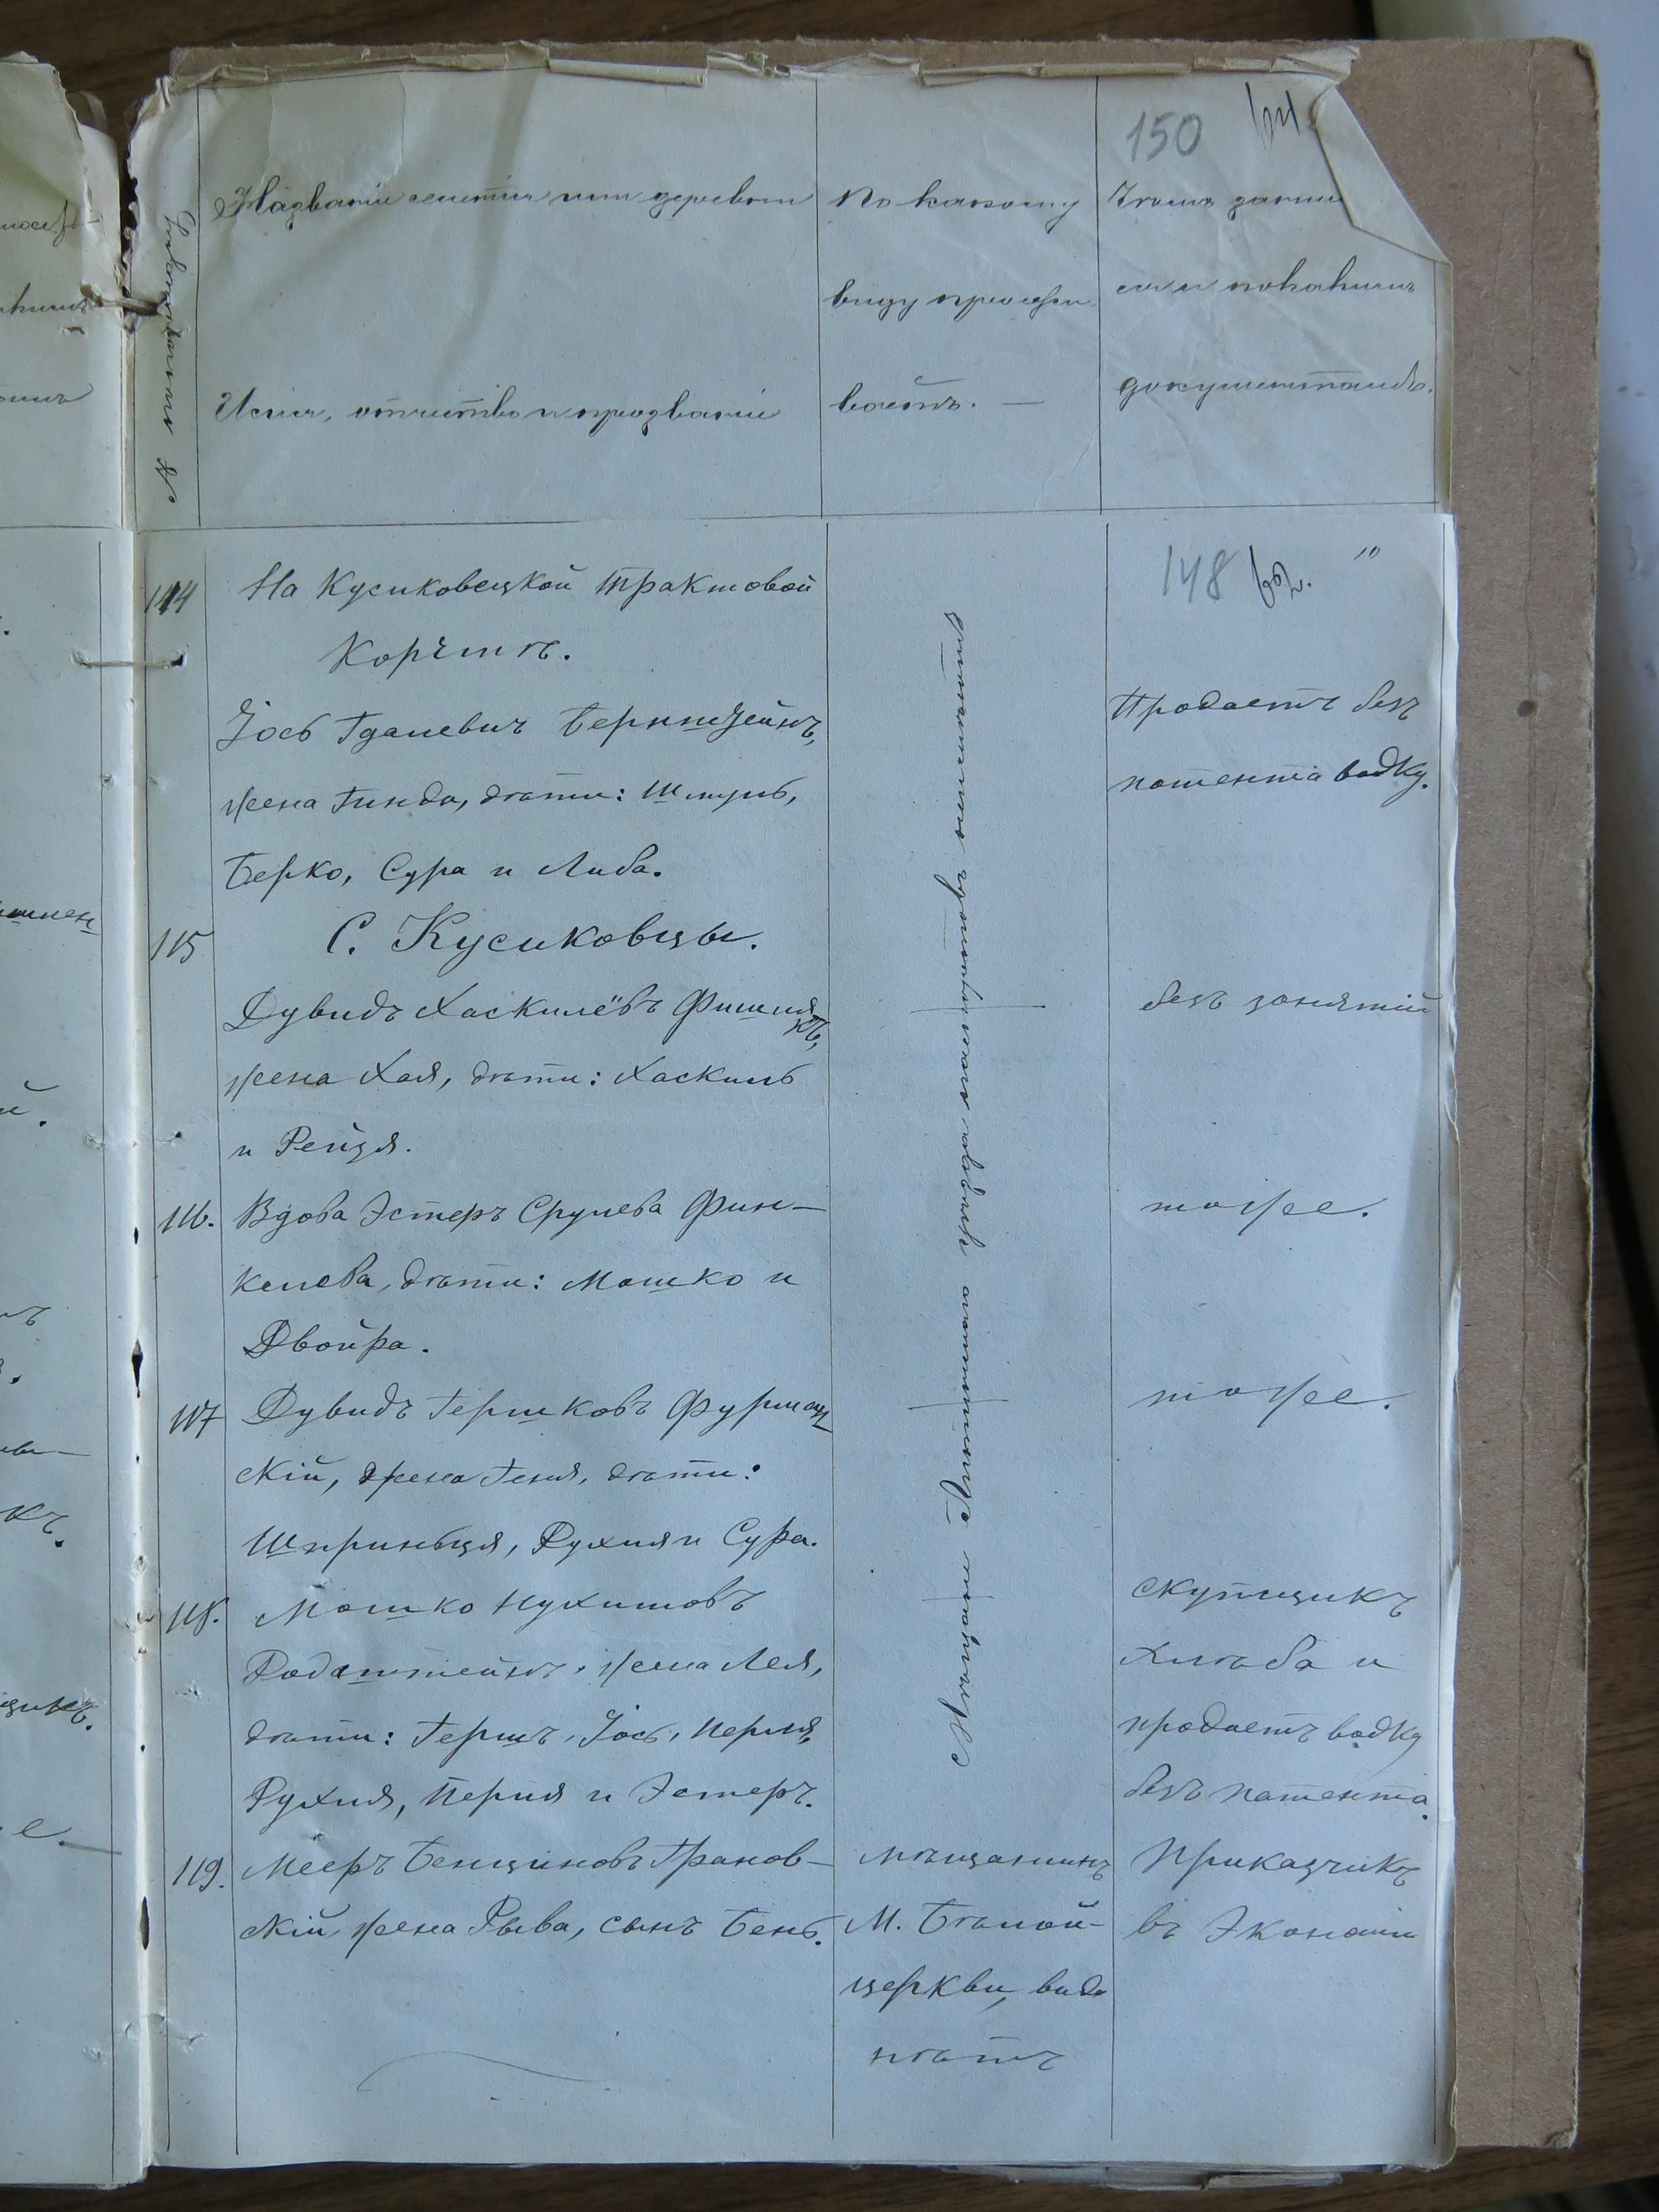 150
Названіе селенія или деревни
По какому
виду прожи
ваетъ. —
документамъ.
Имя, отчество и прозваніе
148
114 На Кусиковецкой трактовой
Корчмѣ.
Іосъ Гдалевичъ Бернштейнъ,
жена Гинда, дѣти: Шмуль,
Берко, Сура и Либа.
Продаетъ безъ
патента водку.
115 С. Кусиковцы.
Дувидъ Хаскилёвъ
жена Хая, дѣти: Хаскиль
и Рейзя.
безъ занятій
116. Вдова Эстеръ Срулева Фин-
келева, дѣти: Мошко и
Двойра.
тоже.
117 Дувидъ Гершковъ Фурман
скій, жена Геня, дѣти:
Шприньця, Рухля и Сура.
тоже.
118. Мошко Нухимовъ
Родаштейнъ, жена Лея,
дѣти: Гершъ, Іось, Перля,
Рухля, Перля и Эстеръ.
скупщикъ
хлѣба и
продаетъ водку
безъ патента.
Мѣщане города
119. Мееръ Бенціновъ Гранов-
скій жена Рыва, сынъ Бень.
мѣщанинъ
М. Бѣлой-
церкви, вида
нѣтъ
Приказчикъ
въ Экономіи